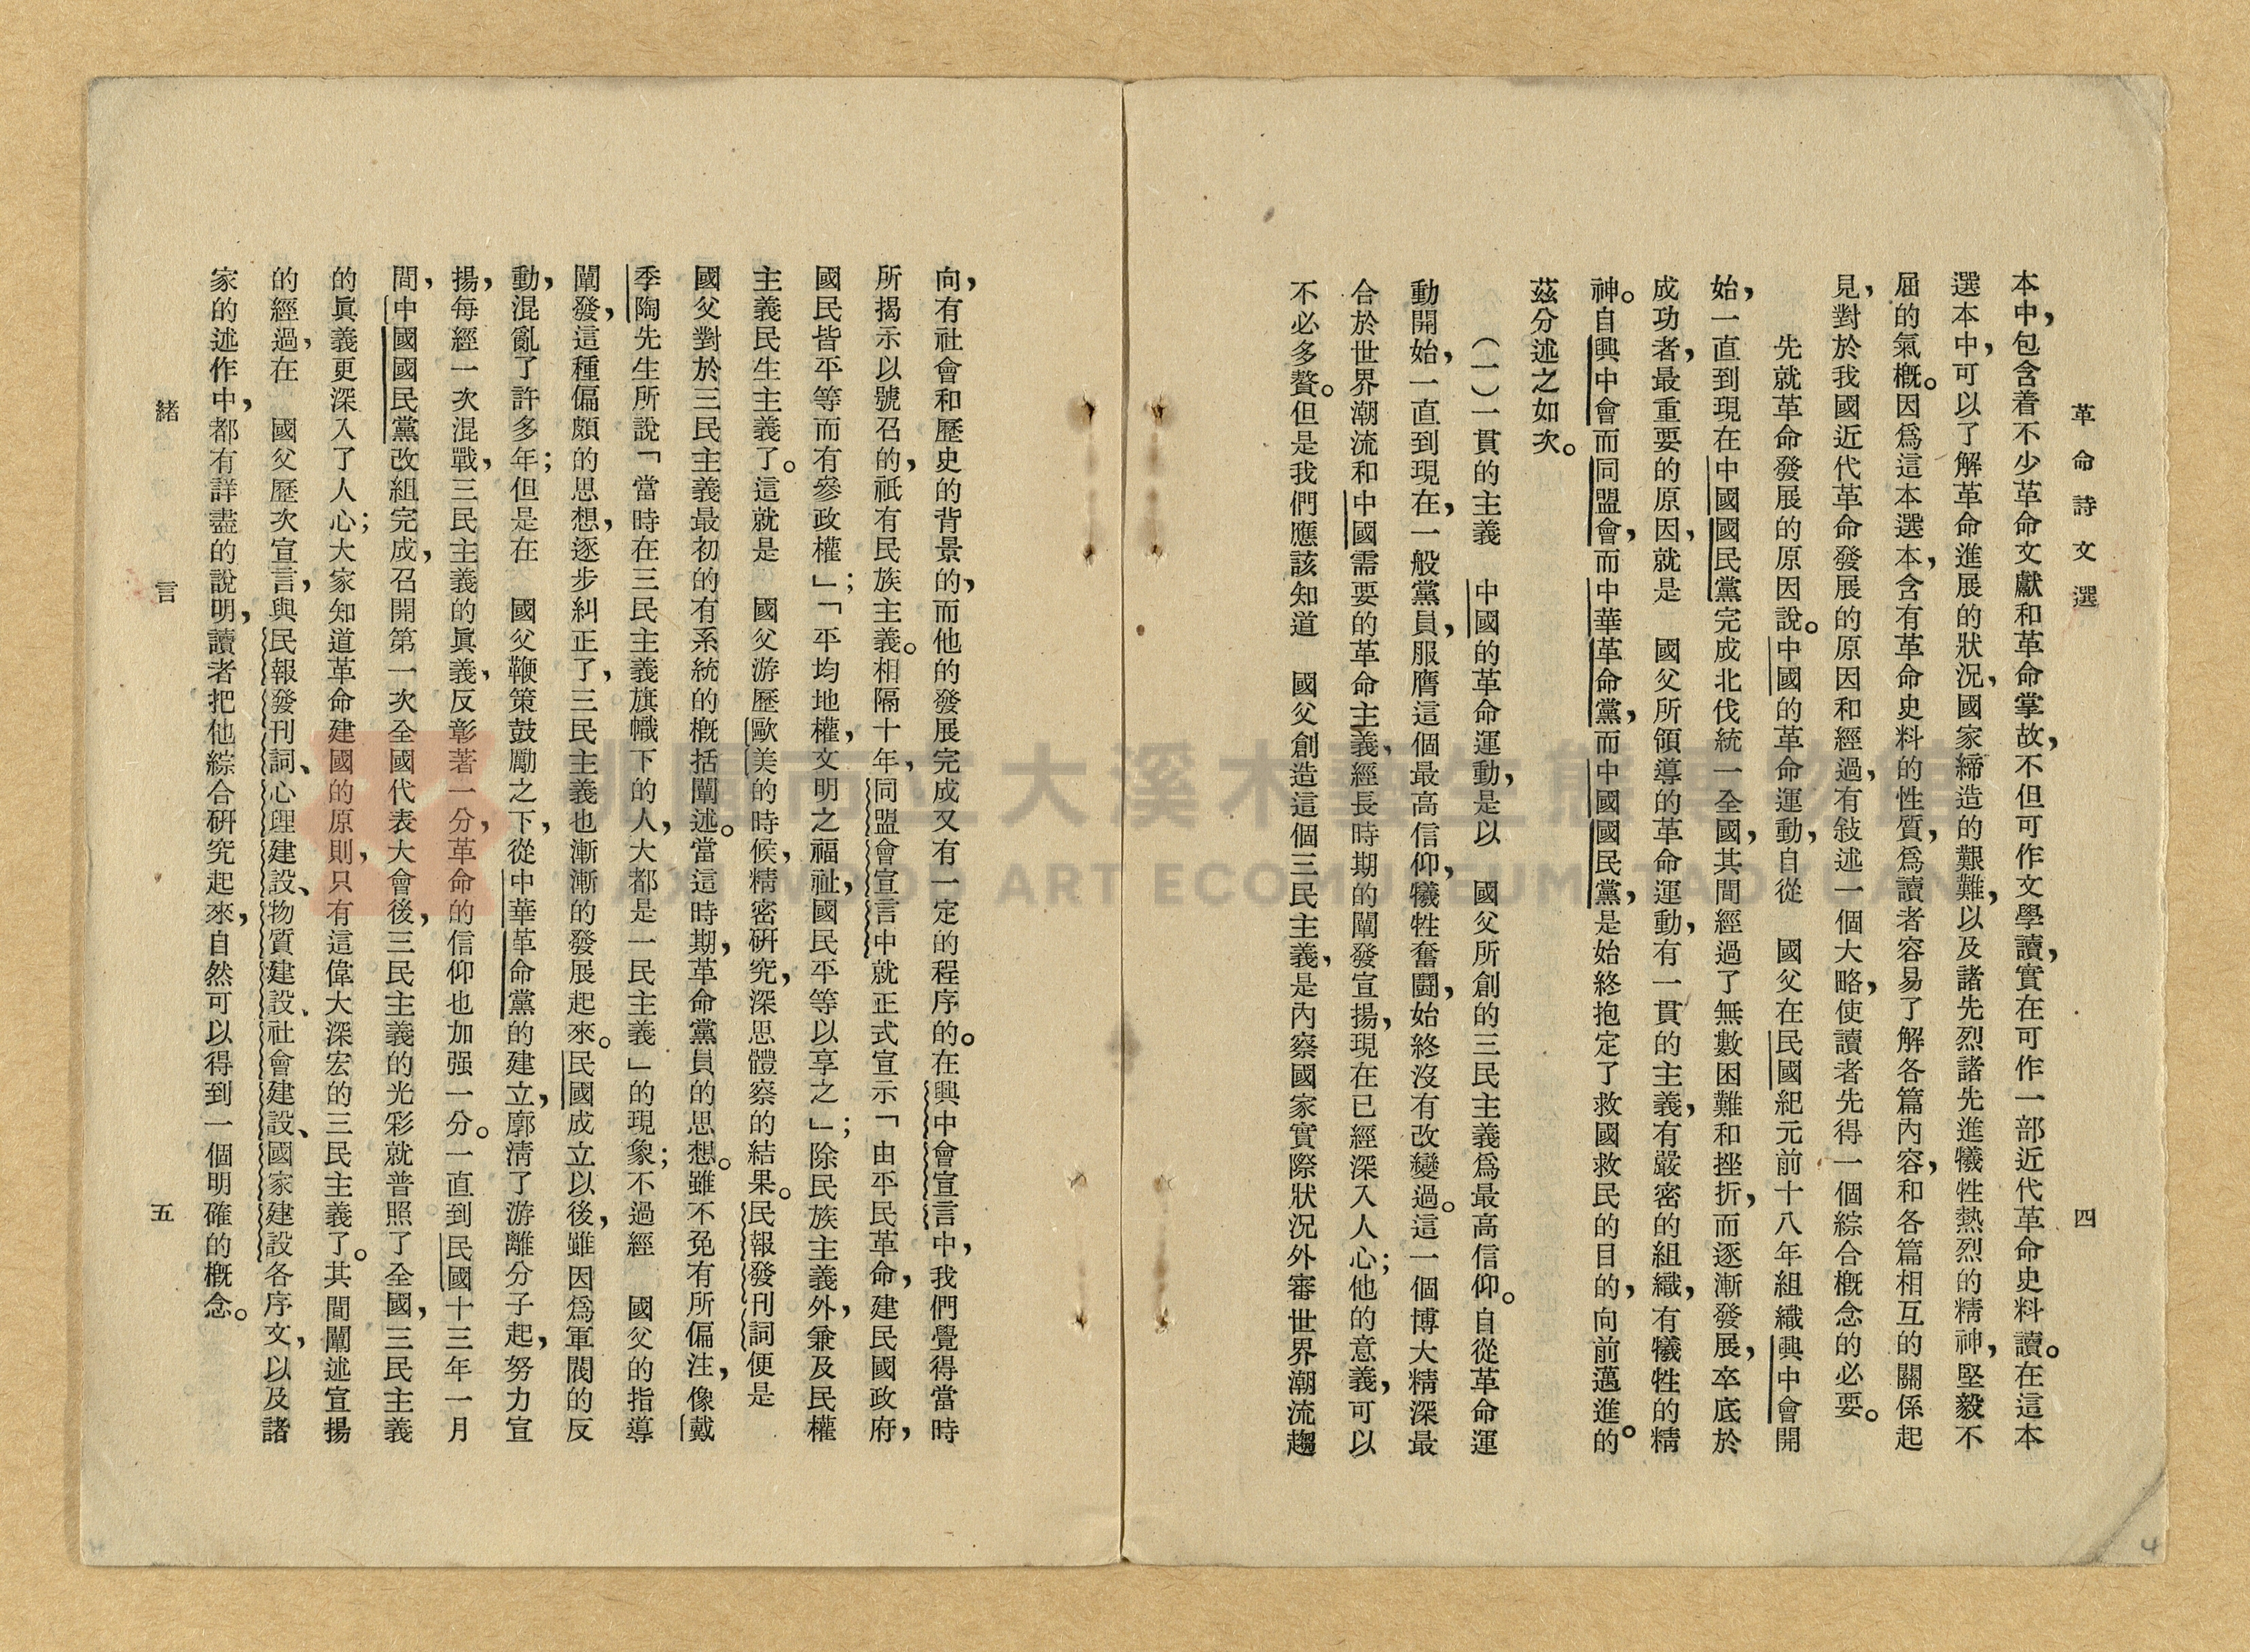 革命詩文選
四
本中，包含着不少革命文獻和革命掌故，不但可作文學讀，實在可作一部近代革命史料讀。在這本
選本中，可以了解革命進展的狀況，國家締造的艱難，以及諸先烈諸先進犧牲熱烈的精神，堅毅不
屈的氣概。因爲這本選本，含有革命史料的性質，爲讀者容易了解各篇內容，和各篇相互的關係起
見，對於我國近代革命發展的原因和經過，有敍述一個大略，使讀者先得一個綜合概念的必要。
先就革命發展的原因說。中國的革命運動，自從　國父在民國紀元前十八年組織興中會開
始，一直到現在中國國民黨完成北伐統一全國，其間經過了無數困難和挫折，而逐漸發展，卒底於
成功者，最重要的原因，就是　國父所領導的革命運動，有一貫的主義，有嚴密的組織，有犧牲的精
神。自興中會而同盟會，而中華革命黨，而中國國民黨，是始終抱定了救國救民的目的，向前邁進的。
茲分述之如次。
（一）一貫的主義　中國的革命運動，是以　國父所創的三民主義爲最高信仰。自從革命運
動開始，一直到現在，一般黨員，服膺這個最高信仰，犧牲奮鬪，始終沒有改變過。這一個博大精深最
合於世界潮流和中國需要的革命主義，經長時期的闡發宣揚，現在已經深入人心；他的意義，可以
不必多贅。但是我們應該知道　國父創造這個三民主義，是內察國家實際狀況外審世界潮流趨
向，有社會和歷史的背景的，而他的發展完成又有一定的程序的。在興中會宣言中，我們覺得當時
所揭示以號召的，祇有民族主義。相隔十年，同盟會宣言中就正式宣示「由平民革命，建民國政府，
國民皆平等而有參政權」；「平均地權，文明之福祉，國民平等以享之」；除民族主義外，兼及民權
主義民生主義了。這就是　國父游歷歐美的時候，精密研究，深思體察的結果。民報發刊詞便是
國父對於三民主義最初的有系統的概括闡述。當這時期，革命黨員的思想。雖不免有所偏注，像戴
季陶先生所說「當時在三民主義旗幟下的人，大都是一民主義」的現象；不過經　國父的指導
闡發，這種偏頗的思想，逐步糾正了，三民主義也漸漸的發展起來。民國成立以後，雖因爲軍閥的反
動，混亂了許多年；但是在　國父鞭策鼓勵之下，從中華革命黨的建立，廓清了游離分子起，努力宣
揚，每經一次混戰，三民主義的眞義，反彰著一分，革命的信仰也加强一分。一直到民國十三年一月
間，中國國民黨改組完成，召開第一次全國代表大會後，三民主義的光彩就普照了全國，三民主義
的眞義更深入了人心；大家知道革命建國的原則，只有這偉大深宏的三民主義了。其間闡述宣揚
的經過，在　國父歷次宣言，與民報發刊詞、心理建設、物質建設、社會建設、國家建設各序文，以及諸
家的述作中，都有詳盡的說明，讀者把他綜合研究起來，自然可以得到一個明確的概念。
緒言
五
桃園市立大溪木藝生態博物館
DAXI WOOD ART ECOMUSEUM, TAOYUAN
4